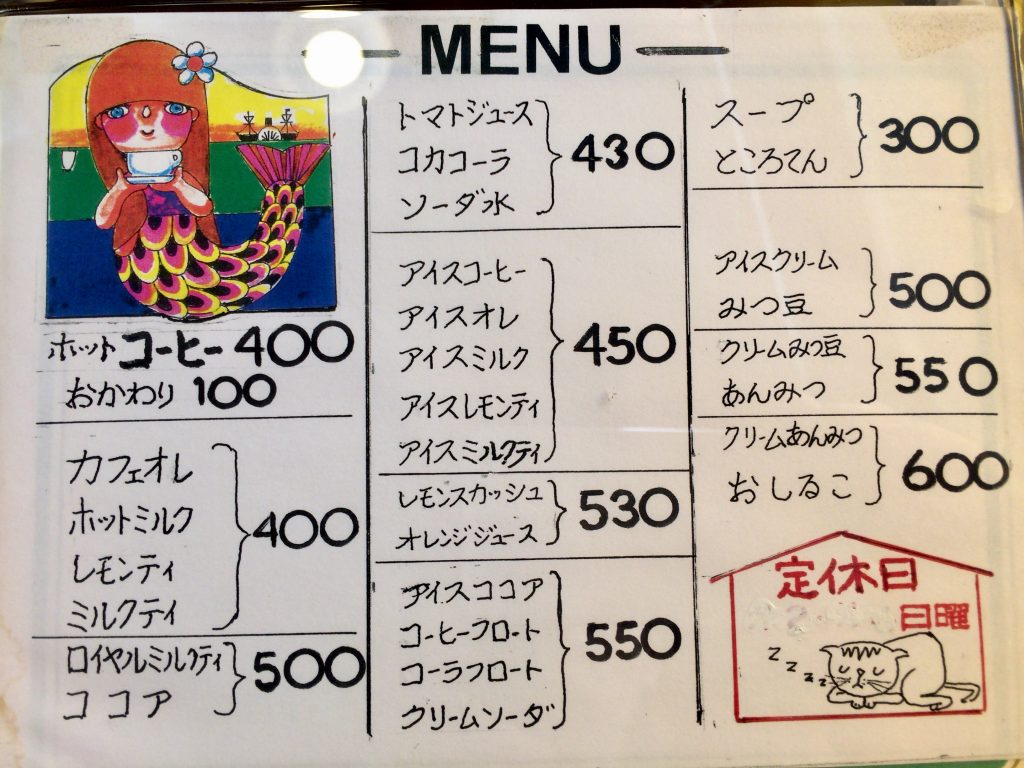 MENU
ホット コーヒー 400
おかわり 100
カフェオレ
ホットミルク
レモンティ
ミルクティ
400
ロイヤルミルクティ
ココア
500
トマトジュース
コカコーラ
ソーダ水
430
アイスコーヒー
アイスオレ
アイスミルク
アイスレモンティ
アイスミルクティ
450
レモンスカッシュ
オレンジジュース
530
アイスココア
コーヒーフロート
コーラフロート
クリームソーダ
550
スープ
ところてん
300
アイスクリーム
みつ豆
500
クリームみつ豆
あんみつ
550
クリームあんみつ
おしるこ
600
定休日
日曜
zzzz